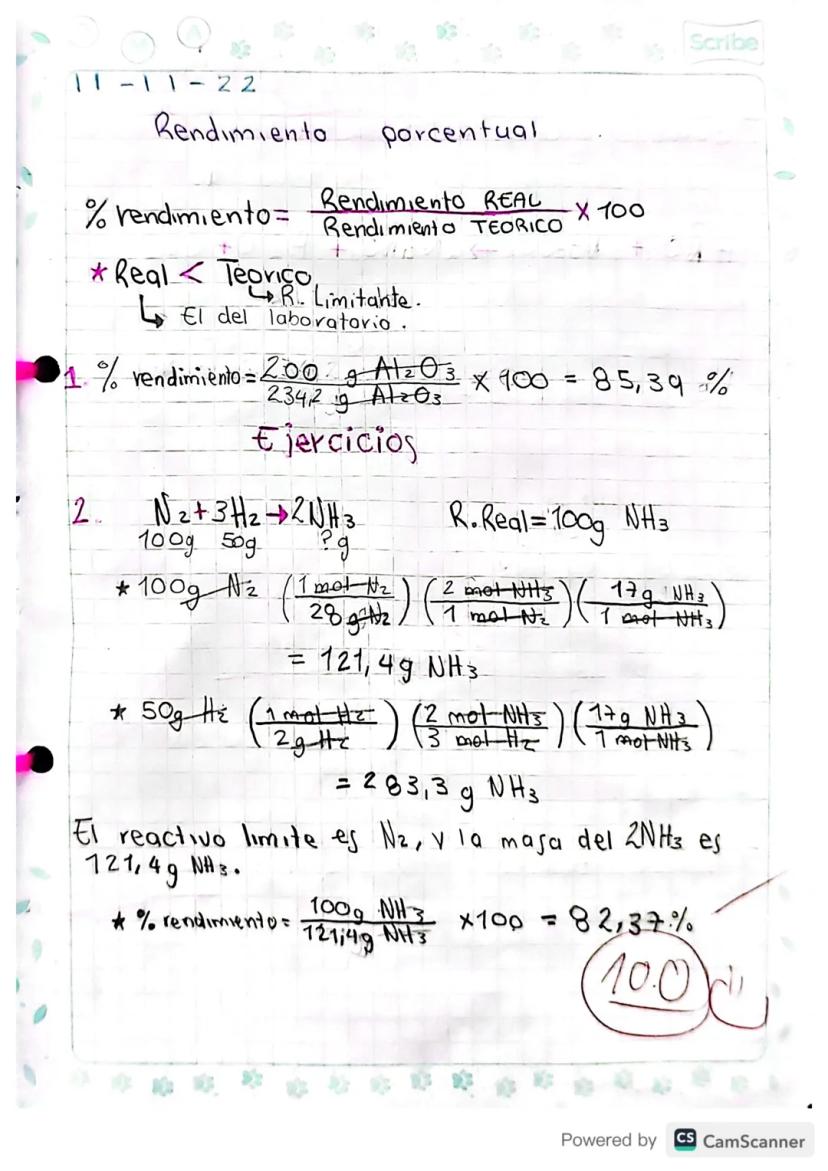 Scribe
11-11-22
Rendimiento porcentual
% rendimiento = Rendimiento REAL / Rendimiento TEORICO × 100
* Real < Teorico
↳ R. Limitante.
↳ El del laboratorio.
1. % rendimiento = 200 g Al2O3 / 234,2 g Al2O3 × 100 = 85,39 %
Ejercicios
2. N2 + 3H2 → 2NH3 R. Real = 100g NH3
100g 50g ?g
* 100g N2 (1 mol N2 / 28 g N2) (2 mol NH3 / 1 mol N2) (17g NH3 / 1 mol NH3)
= 121,4g NH3
* 50g H2 (1 mol H2 / 2g H2) (2 mol NH3 / 3 mol H2) (17g NH3 / 1 mol NH3)
= 283,3 g NH3
El reactivo limite es N2, y la masa del 2NH3 es
121,4g NH3.
* % rendimiento = 100g NH3 / 121,4g NH3 ×100 = 82,37%
10.0
Powered by CS CamScanner